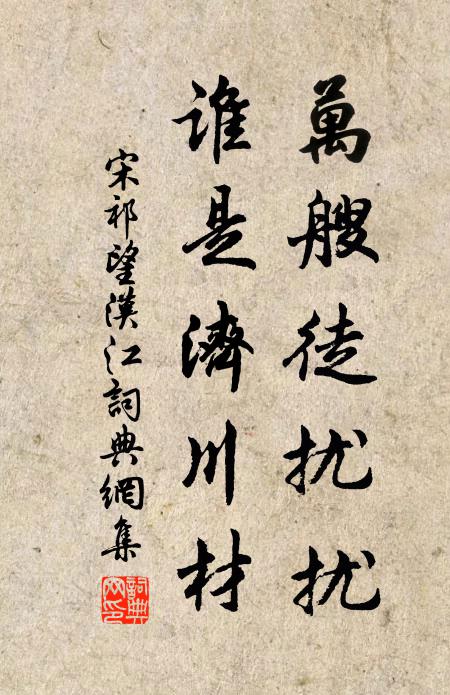 萬艘徒扰扰
誰是濟川材
宋祁望漢江詞典網集
詞典